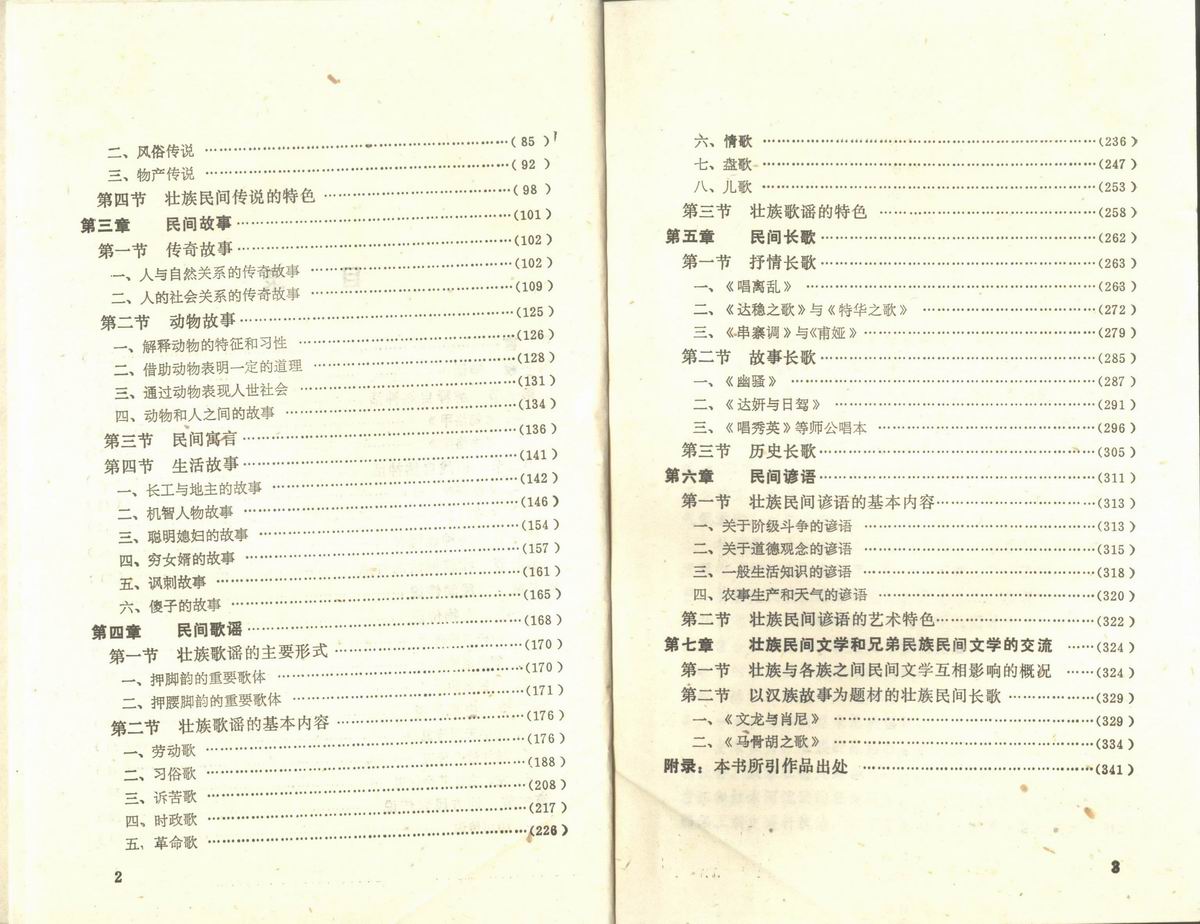 二、风俗传说 ……(85)
三、物产传说 ……(92)
第四节 壮族民间传说的特色 ……(98)
第三章 民间故事 ……(101)
第一节 传奇故事 ……(102)
一、人与自然关系的传奇故事 ……(102)
二、人的社会关系的传奇故事 ……(109)
第二节 动物故事 ……(125)
一、解释动物的特征和习性 ……(126)
二、借助动物表明一定的道理 ……(128)
三、通过动物表现人世社会 ……(131)
四、动物和人之间的故事 ……(134)
第三节 民间寓言 ……(136)
第四节 生活故事 ……(141)
一、长工与地主的故事 ……(142)
二、机智人物故事 ……(146)
三、聪明媳妇的故事 ……(154)
四、穷女婿的故事 ……(157)
五、讽刺故事 ……(161)
六、傻子的故事 ……(165)
第四章 民间歌谣 ……(168)
第一节 壮族歌谣的主要形式 ……(170)
一、押脚韵的重要歌体 ……(170)
二、押腰脚韵的重要歌体 ……(171)
第二节 壮族歌谣的基本内容 ……(176)
一、劳动歌 ……(176)
二、习俗歌 ……(188)
三、诉苦歌 ……(208)
四、时政歌 ……(217)
五、革命歌 ……(226)
2
六、情歌 ……(236)
七、盘歌 ……(247)
八、儿歌 ……(253)
第三节 壮族歌谣的特色 ……(258)
第五章 民间长歌 ……(262)
第一节 抒情长歌 ……(263)
一、《唱离乱》 ……(263)
二、《达稳之歌》与《特华之歌》 ……(272)
三、《串寨调》与《甫娅》 ……(279)
第二节 故事长歌 ……(285)
一、《幽骚》 ……(287)
二、《达妍与日驾》 ……(291)
三、《唱秀英》等师公唱本 ……(296)
第三节 历史长歌 ……(305)
第六章 民间谚语 ……(311)
第一节 壮族民间谚语的基本内容 ……(313)
一、关于阶级斗争的谚语 ……(313)
二、关于道德观念的谚语 ……(315)
三、一般生活知识的谚语 ……(318)
四、农事生产和天气的谚语 ……(320)
第二节 壮族民间谚语的艺术特色 ……(322)
第七章 壮族民间文学和兄弟民族民间文学的交流 ……(324)
第一节 壮族与各族之间民间文学互相影响的概况 ……(324)
第二节 以汉族故事为题材的壮族民间长歌 ……(329)
一、《文龙与肖尼》 ……(329)
二、《马骨胡之歌》 ……(334)
附录：本书所引作品出处 ……(341)
3